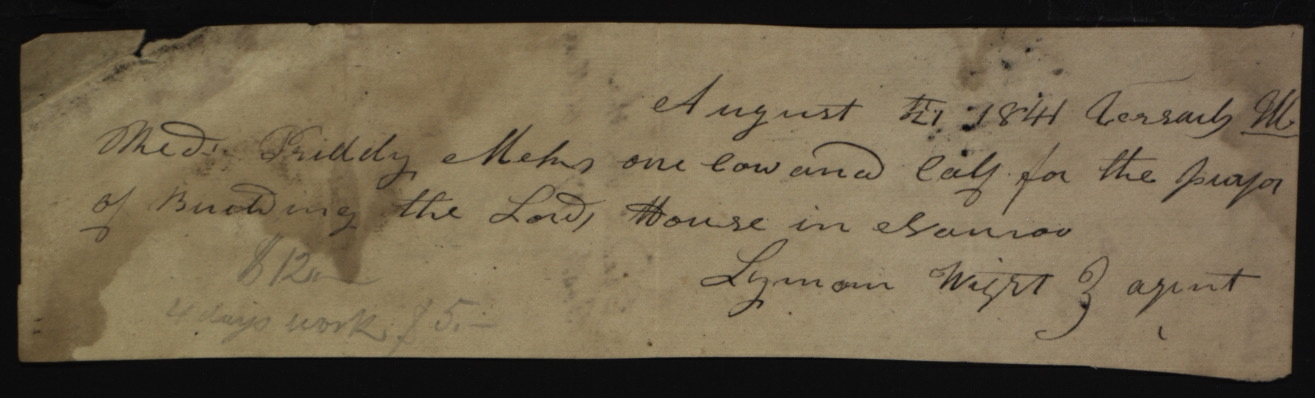 August 21 1841 Versails Ill
Priddy Mekes one Cow and Calf for the purpos
of Building the Lords House in Nauvoo
$12.—
Lyman Wight agent
4 days work $5.—